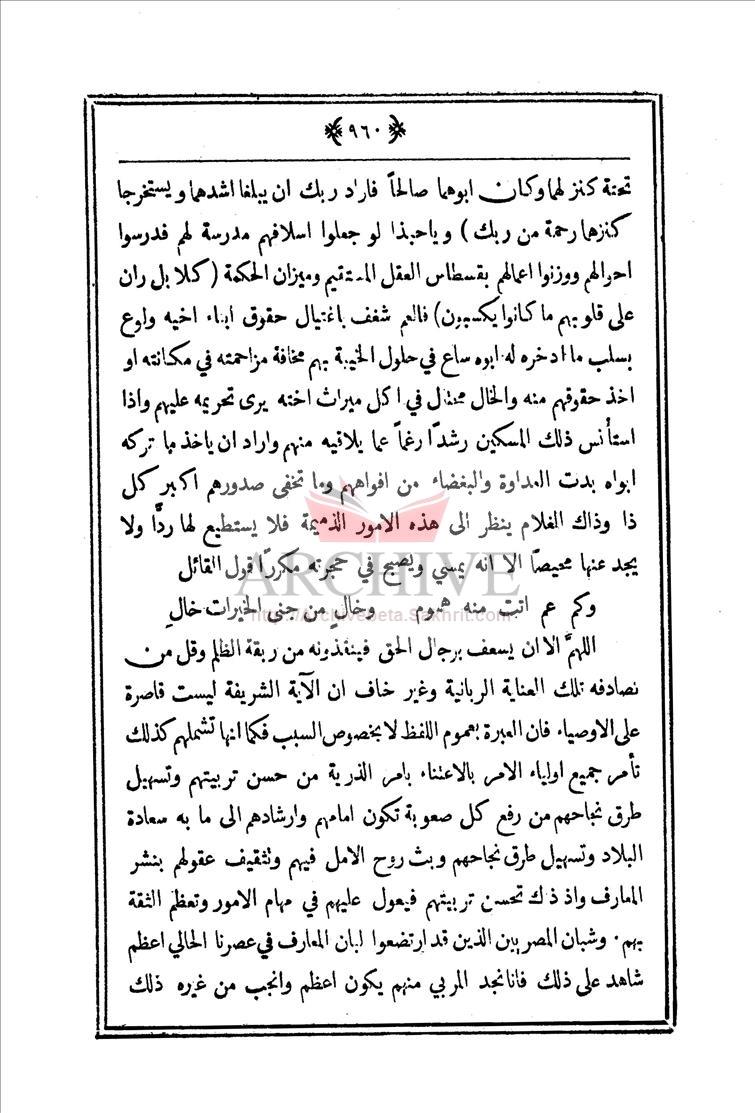 ٩٦٠
تحتة كنز لهما وكان ابوهما صالحاً فاراد ربك ان يبلغا اشدهما ويستخرجا
كنزهما رحمة من ربك ) وياحبذا لو جعلوا اسلافهم مدرسة لهم فدرسوا
احوالهم ووزنوا اعمالهم بقسطاس العقل المستقيم وميزان الحكمة ( كلا بل ران
على قلوبهم ما كانوا يكسبون) فالعم شغف باغتيال حقوق ابناء اخيه واوع
بسلب ما ادخره له ابوه ساع في حلول الخيبة بهم مخافة مزاحمته في مكانته او
اخذ حقوقهم منه والخال محتال في اكل ميراث اخته يرى تحريمه عليهم واذا
استأنس ذلك المسكين رشدًا رغماً عما يلاقيه منهم واراد ان ياخذ ما تركه
ابواه بدت العداوة والبغضاء من افواههم وما تخفى صدورهم اكبر كل
ذا وذاك الغلام ينظر الى هذه الامور الذميمة فلا يستطيع لها ردًّا ولا
يجد عنها محيصًا الا انه يمسي ويصبح في حجرته مكررًا قول القائل
وكم عم اتت منه هموم وخالٍ من جنى الخيرات خالي
اللهمَّ الا ان يسعف برجال الحق فينقذونه من ربقة الظلم وقل من
نصادفه تلك العناية الربانية وغير خاف ان الآية الشريفة ليست قاصرة
على الاوصياء فان العبرة بعموم اللفظ لا بخصوص السبب فكما انها تشملهم كذلك
تأمر جميع اولياء الامر بالاعتناء بامر الذرية من حسن تربيتهم وتسهيل
طرق نجاحهم من رفع كل صعوبة تكون امامهم وارشادهم الى ما به سعادة
البلاد وتسهيل طرق نجاحهم وبث روح الامل فيهم وتثقيف عقولهم بنشر
المعارف واذ ذك تحسن تربيتهم فيعول عليهم في مهام الامور وتعظم الثقة
بهم . وشبان المصريين الذين قد ارتضعوا لبان المعارف في عصرنا الحالي اعظم
شاهد على ذلك فانا نجد المربي منهم يكون اعظم وانجب من غيره ذلك
ARCHIVE
http://Archivebeta.Sakhrit.com